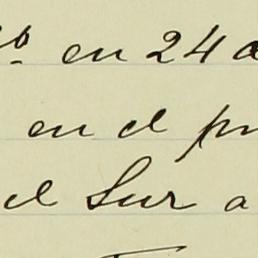 en 24
en el
el Sur a